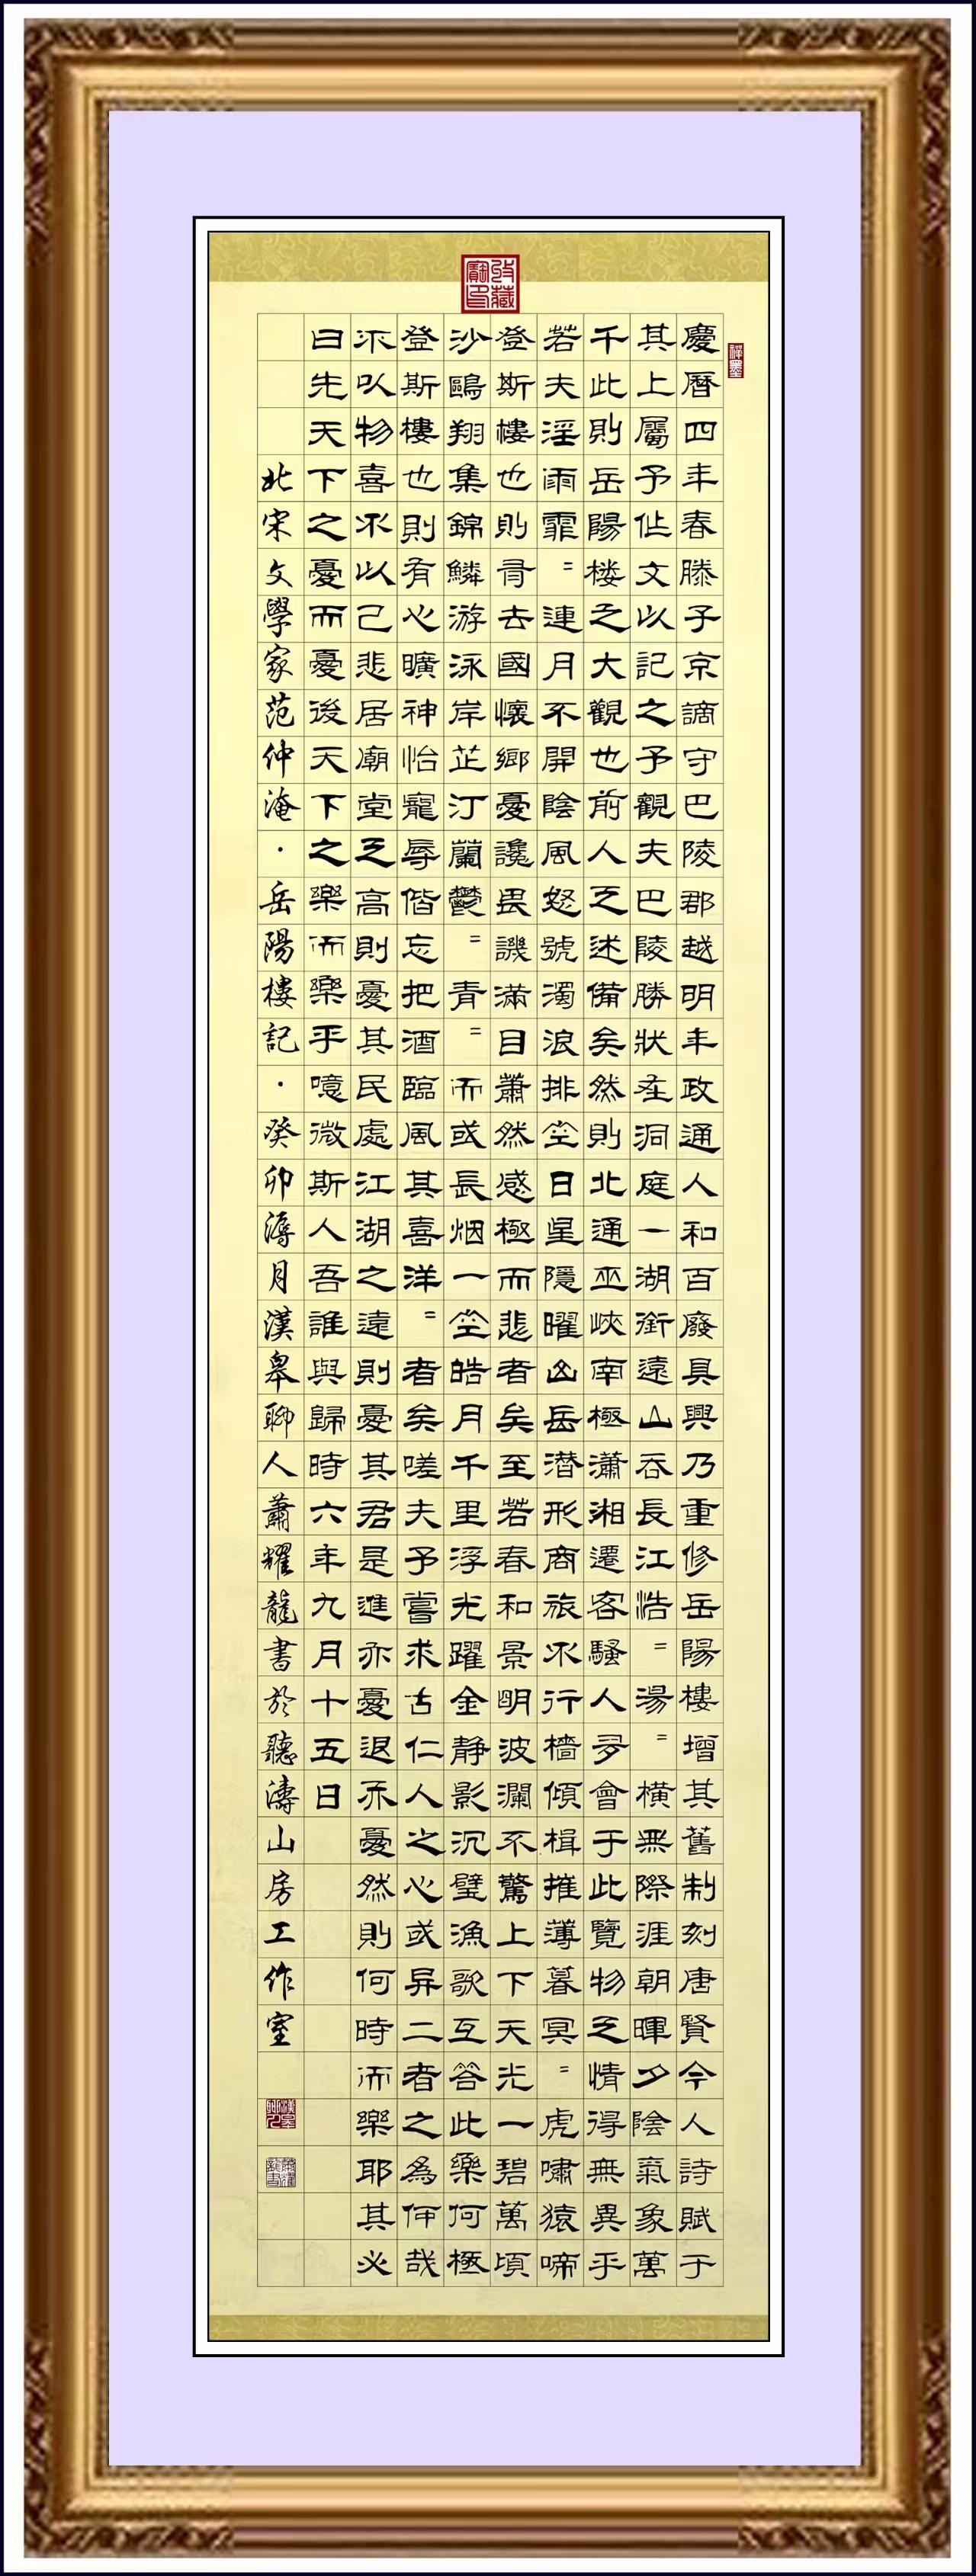 慶曆四年春滕子京謫守巴陵郡越明年政通人和百廢具興乃重修岳陽樓增其舊制刻唐賢今人詩賦于
其上屬予作文以記之予觀夫巴陵勝狀在洞庭一湖銜遠山吞長江浩=湯=橫無際涯朝暉夕陰氣象萬
千此則岳陽楼之大觀也前人之述備矣然則北通巫峽南極瀟湘遷客騷人多會于此覽物之情得無異乎
若夫淫雨霏=連月不開陰風怒號濁浪排空日星隱曜山岳潜形商旅不行檣傾楫摧薄暮冥=虎嘯猿啼
登斯樓也則有去國懷鄉憂讒畏譏滿目蕭然感極而悲者矣至若春和景明波瀾不驚上下天光一碧萬頃
沙鷗翔集錦鱗游泳岸芷汀蘭鬱=青=而或長烟一空皓月千里浮光躍金静影沉璧漁歌互答此樂何極
登斯樓也則有心曠神怡寵辱偕忘把酒臨風其喜洋=者矣嗟夫予嘗求古仁人之心或异二者之為何哉
不以物喜不以己悲居廟堂之高則憂其民處江湖之遠則憂其君是進亦憂退亦憂然則何時而樂耶其必
曰先天下之憂而憂後天下之樂而樂乎噫微斯人吾誰與歸時六年九月十五日
北宋文學家范仲淹·岳陽樓記·癸卯潯月漢皋聊人蕭耀龍書於聽濤山房工作室
收藏寶印